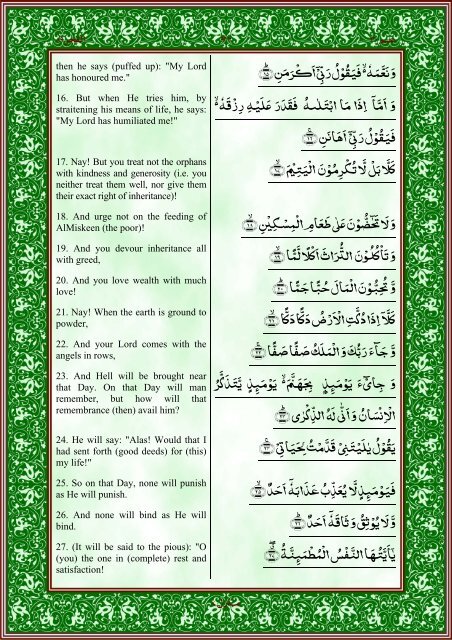 then he says (puffed up): "My Lord
has honoured me."
16. But when He tries him, by
straitening his means of life, he says:
"My Lord has humiliated me!"
17. Nay! But you treat not the orphans
with kindness and generosity (i.e. you
neither treat them well, nor give them
their exact right of inheritance)!
18. And urge not on the feeding of
AlMiskeen (the poor)!
19. And you devour inheritance all
with greed,
20. And you love wealth with much
love!
21. Nay! When the earth is ground to
powder,
22. And your Lord comes with the
angels in rows,
23. And Hell will be brought near
that Day. On that Day will man
remember, but how will that
remembrance (then) avail him?
24. He will say: "Alas! Would that I
had sent forth (good deeds) for (this)
my life!"
25. So on that Day, none will punish
as He will punish.
26. And none will bind as He will
bind.
27. (It will be said to the pious): "O
(you) the one in (complete) rest and
satisfaction!
وَنَعَّمَهٗ ۙ۬ فَيَقُوْلُ رَبِّيْۤ اَكْرَمَنِ ۝١٥
وَ اَمَّاۤ اِذَا مَا ابْتَلٰىهُ فَقَدَرَ عَلَيْهِ رِزْقَهٗ ۙ۬
فَيَقُوْلُ رَبِّيْۤ اَهَانَنِ ۝١٦
كَلَّا بَلْ لَّا تُكْرِمُوْنَ الْيَتِيْمَ ۝١٧
وَلَا تَحٰٓضُّوْنَ عَلٰى طَعَامِ الْمِسْكِيْنِ ۝١٨
وَتَاْكُلُوْنَ التُّرَاثَ اَكْلًا لَّمًّا ۝١٩
وَّتُحِبُّوْنَ الْمَالَ حُبًّا جَمًّا ۝٢٠
كَلَّاۤ اِذَا دُكَّتِ الْاَرْضُ دَكًّا دَكًّا ۝٢١
وَّجَآءَ رَبُّكَ وَالْمَلَكُ صَفًّا صَفًّا ۝٢٢
وَ جِايْٓءَ يَوْمَىِٕذٍۭ بِجَهَنَّمَ ۙ۬ يَوْمَىِٕذٍ يَّتَذَكَّرُ
الْاِنْسَانُ وَاَنّٰى لَهُ الذِّكْرٰى ۝٢٣
يَقُوْلُ يٰلَيْتَنِيْ قَدَّمْتُ لِحَيَاتِيْ ۝٢٤
فَيَوْمَىِٕذٍ لَّا يُعَذِّبُ عَذَابَهٗۤ اَحَدٌ ۝٢٥
وَّلَا يُوْثِقُ وَثَاقَهٗۤ اَحَدٌ ۝٢٦
يٰۤاَيَّتُهَا النَّفْسُ الْمُطْمَىِٕنَّةُ ۝٢٧